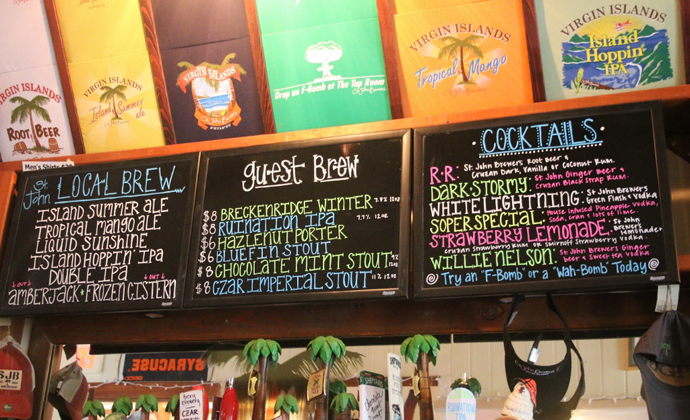 VIRGIN ISLANDS
ROOT BEER
VIRGIN ISLANDS
Island Summer
ale
VIRGIN ISLANDS
Drop an F-Bomb at The Tap Room
VIRGIN ISLANDS
Tropical Mango
VIRGIN ISLANDS
Island
Hoppin'
IPA
Men's Shirts
St. John LOCAL BREW
ISLAND SUMMER ALE
TROPICAL MANGO ALE
LIQUID SUNSHINE
ISLAND HOPPIN' IPA
DOUBLE IPA
↓OUT↓ ↓OUT↓
AMBERJACK + FROZEN CISTERN
guest BREW
$8 BRECKENRIDGE WINTER 7.9% 12oz
$8 RUINATION IPA 7.7% 12oz
$6 HAZLENUT PORTER
$6 BLUEFIN STOUT
$8 CHOCOLATE MINT STOUT
$8 CZAR IMPERIAL STOUT 11% 12oz
COCKTAILS
R+R: ST. JOHN BREWERS ROOT BEER &
CRUZAN DARK, VANILLA OR COCONUT RUM
DARK+STORMY: ST. JOHN GINGER BEER &
CRUZAN BLACK STRAP RUM.
WHITE LIGHTNING: ST. JOHN BREWERS
GREEN FLASH + VODKA
SOPER SPECIAL: HOUSE INFUSED PINEAPPLE VODKA,
SODA, CRAN & LOTS OF LIME.
STRAWBERRY LEMONADE: ST. JOHN BREWERS LEMONADE+
CRUZAN STRAWBERRY RUM OR SMIRNOFF STRAWBERRY VODKA
WILLIE NELSON: ST. JOHN BREWERS GINGER
BEER & SWEET TEA VODKA
TRY AN "F-BOMB" OR A "WAH-BOMB" TODAY
SJB
SYRACUSE
CZAR